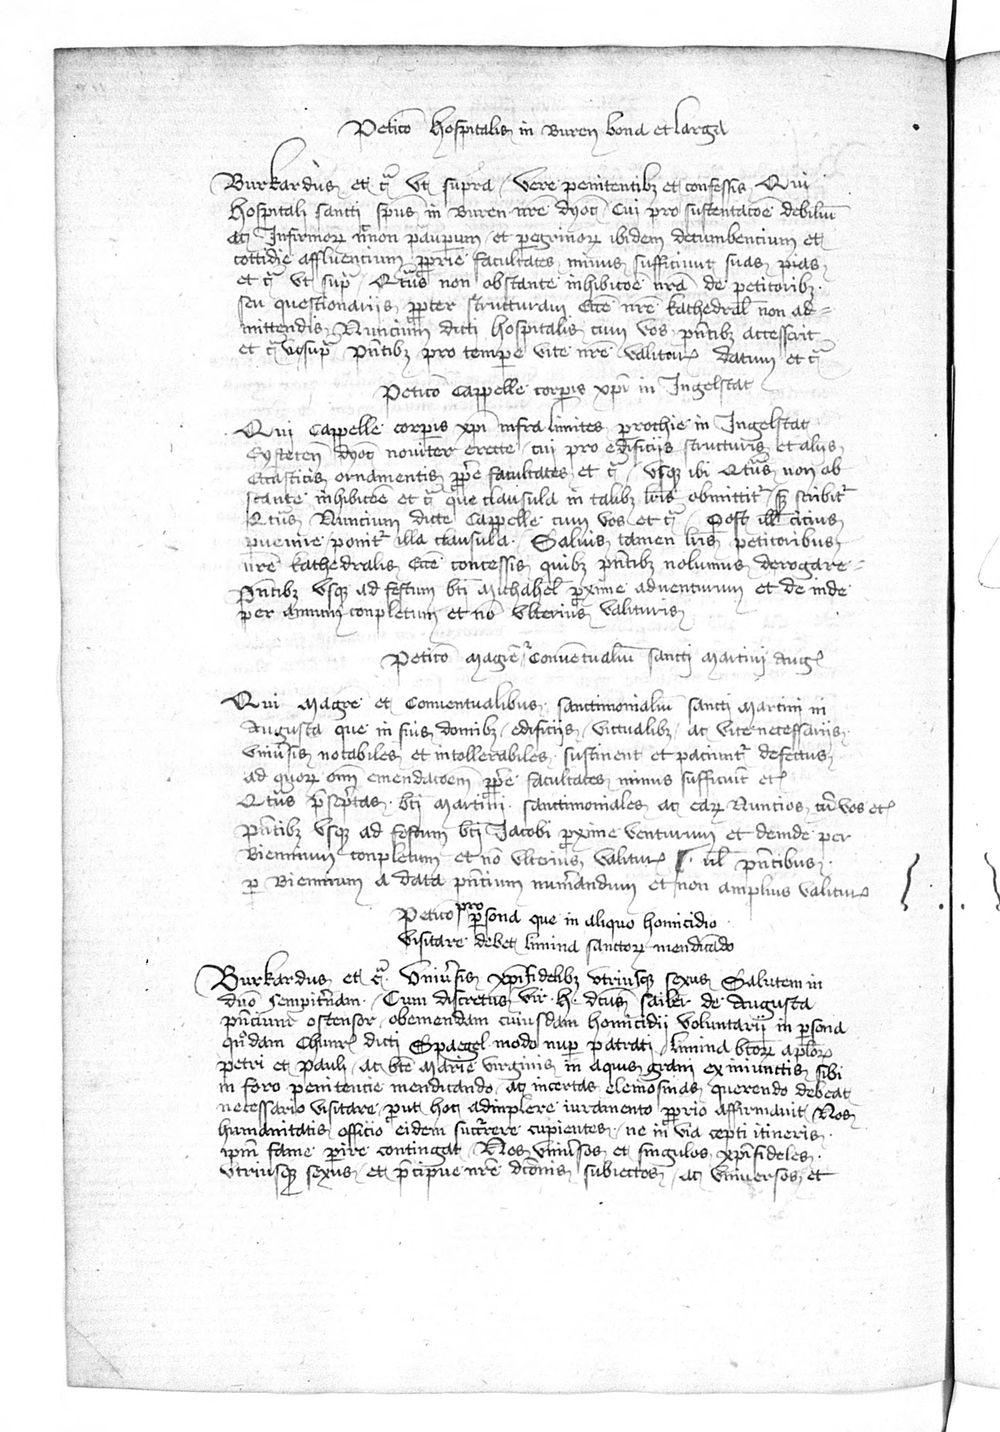 Peticō hospitalis in Buren bona et larga
Burkardus et c̄ vt supra / vere penitentibz et confessis Qui
hospitali sancti sp̄us in Buren nr̄e dyoc̄ / Cui pro sustentacōe debiliū
ac Infirmorꝝ n̄non pauperum et peregrinorꝝ ibidem decumbencium et
cottidie affluencium ꝓprie facultates minus sufficiunt suas pias
et c̄ vt supᵃ / Qtūs non obstante inhibicōe nr̄a de petitoribz
seu questionariis ꝓpter structuram Ecc̄e nr̄e kathedral̄ non ad=
mittendis Nuncium dicti hospitalis cum vos pn̄tibz accesserit
et c̄ vt supᵃ pn̄tibz pro tempe vite nr̄e valitur̄ Datum et c̄
Peticō Cappelle corpis xp̄i in Ingelstat
Qui Cappelle corpis xp̄i infra limites prochie in Ingelstat
Eysteten dyoc̄ noviter erecte / cui pro edificiis structuris et aliis
Ecc̄asticis ornamentis ꝓp̄e facultates et c̄ / vsqꝫ ibi Qtūs non ob
stante inhibicōe et c̄ que clausula in talibz lr̄is obmittit᷑ / sꝫ scribit᷑
Qtūs Nuncium dicte Cappelle cum vos et c̄ / Post ill̄ cicius
ꝑuenire ponit᷑ illa clausula . Saluis tamen lr̄is petitoribus
nr̄e kathedralis Ecc̄e concessis quibz pn̄tibz nolumus derogare=
Pn̄tibz vsqꝫ ad festum bt̄i Michahel̄ ꝓxime adventurum et de inde
per Annum conpletum et nō vlterius valituris
Peticō Magrē ⁊ Conuentualiū sancti Martini Aug᷑
Qui Magre et Conuentualibus sanctimonialiū sancti Martini in
Augusta que in suis domibz / edificiis / victualibz / ac vite necessariis
vniūsis notabiles et intollerabiles sustinent et paciunt᷑ defectus
ad quorꝝ om̄ emendacōem ꝓp̄e facultates minus sufficiūt et c̄
Qtūs p̄sc̄ptas bt̄i Martini sanctimoniales ac earꝝ Nuncios cū vos et c̄
pn̄tibz vsqꝫ ad festum bt̄i Jacobi ꝓxime venturum et deinde per
Biennium conpletum et nō vlterius valitur̄ . ul̄ pn̄tibus
ꝑ Biennium a data pn̄cium num̄andum et non amplius valitur̄
Peticō pro ꝑsona que in aliquo homicidio
visitare debet limina sanctorꝝ mendicādo
Burkardus et c̄ . Vniūsis xp̄ifidelibz vtriusqꝫ sexus Salutem in
dn̄o sempit̄nam . Cum discretus vir . H . dc̄us sailer de Augusta
pn̄cium ostensor / ob emendam cuiusdam homicidii voluntarii in ꝑsona
qn̄dam Chunr̄ dicti Spaegel modo nuꝑ patrati / limina bt̄orꝝ apl̄orꝝ
petri et pauli / ac bt̄e Marie virginis in aquis grani ex iniunctis sibi
in foro penitencie mendicando / ac incertas elemosinas querendo debeat
necessario visitare / put hoc adinplere iuramento ꝓprio affirmauit Nos
humanitatis officio eidem succ̄rere cupientes / ne in via cepti itineris
ipm̄ fame ꝑire contingat / Nos vniūsos et singulos xp̄ifideles
vtriusqꝫ sexus / et p̄cipue nr̄e dic̄onis subiectos / ac vniuersos et